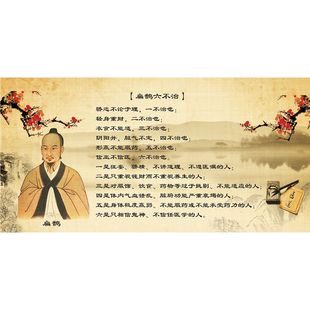 【扁鹊六不治】
骄恣不论于理，一不治也；
轻身重财，二不治也；
衣食不能适，三不治也；
阴阳并，脏气不定，四不治也；
形羸不能服药，五不治也；
信巫不信医，六不治也。
一是狂妄、骄横、不讲道理、不遵医嘱的人；
二是只重视钱财而不重视养生的人；
三是对服饰、饮食、药物等过于挑剔、不能适应的人；
四是体内气血错乱、脏腑功能严重衰竭的人；
五是身体极度羸弱、不能服药或不能承受药力的人；
六是只相信鬼神、不信任医学的人。
扁鹊